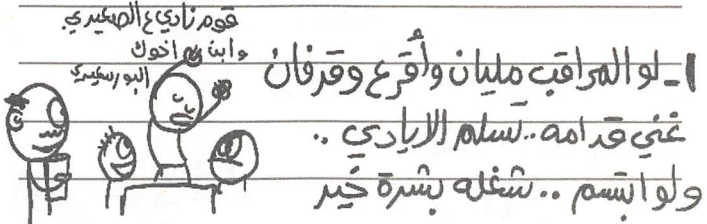 قوم نادي ع الصعيدي
وابن اخوك
البورسعيدي
1- لو المراقب مليان وأقرع وقرفان
غني قدامه.. تسلم الايادي ..
ولو ابتسم .. شغله بشرة خير